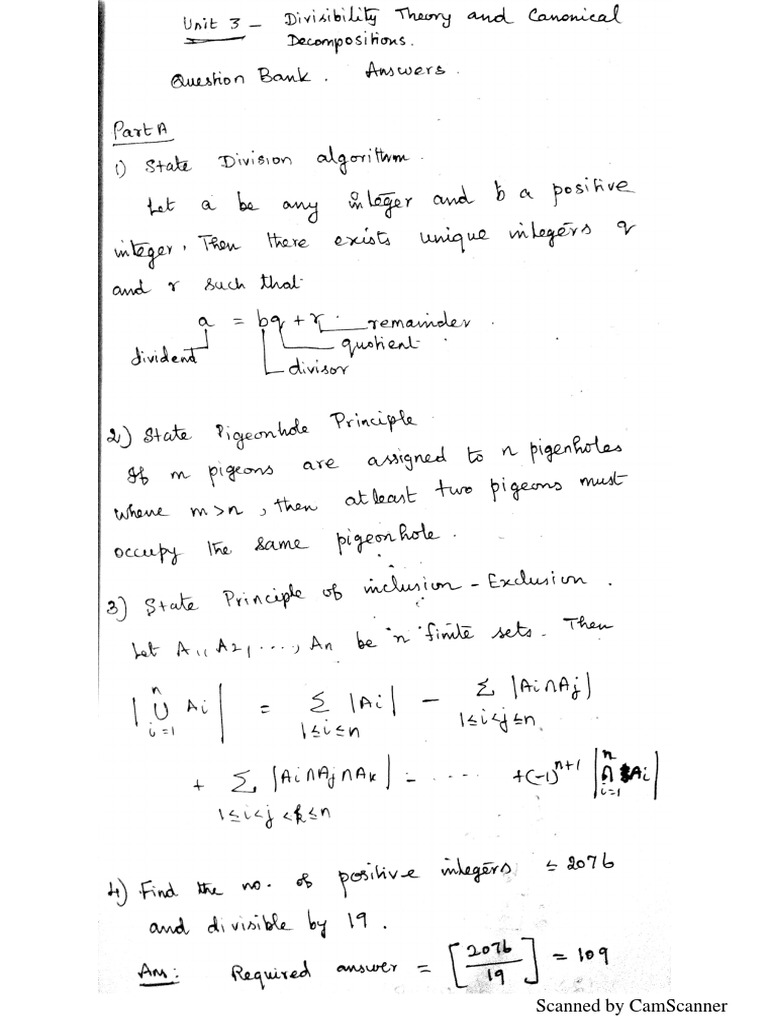 Unit 3 - Divisibility Theory and Canonical
Decompositions.
Question Bank. Answers.
Part A
1) State Division algorithm.
Let a be any integer and b a positive
integer, Then there exists unique integers q
and r such that
a = bq + r
remainder.
quotient
dividend
divisor
2) State Pigeonhole Principle
If m pigeons are assigned to n pigenholes
where m>n, then atleast two pigeons must
occupy the same pigeonhole.
3) State Principle of inclusion - Exclusion.
Let A1, A2, ..., An be 'n' finite sets. Then
|∪ⁿᵢ₌₁ Ai| = Σ1≤i≤n |Ai| - Σ1≤i<j≤n |Ai∩Aj|
+ Σ1≤i<j<k≤n |Ai∩Aj∩Ak| - ..... +(-1)ⁿ⁺¹ |∩ⁿᵢ₌₁ Ai|
4) Find the no. of positive integers ≤ 2076
and divisible by 19.
Ans: Required answer = [2076/19] = 109
Scanned by CamScanner